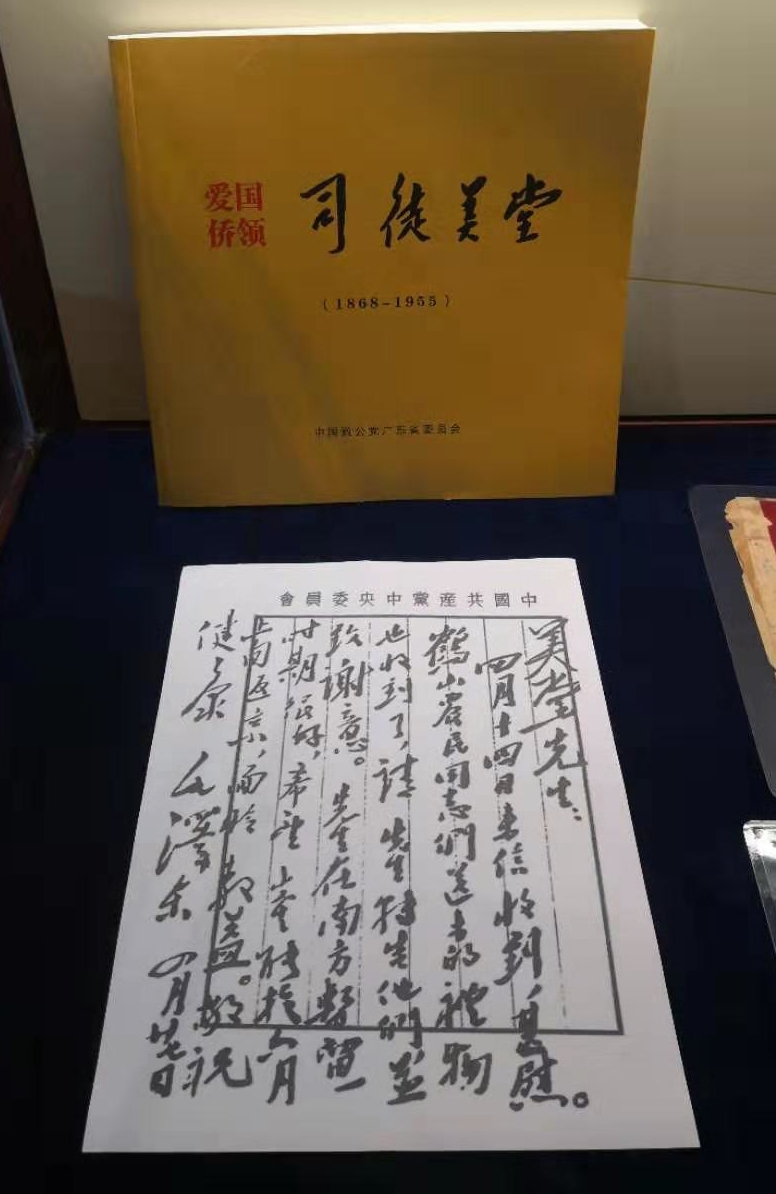 爱国
侨领
司徒美堂
(1868-1955)
中国致公党广东省委员会
中國共産黨中央委員會
美堂先生:
四月十四日来信收到,甚慰。
鶴山農民同志們送来的禮物
也收到了,請先生轉告他們並
致謝意。先生在南方暫留一
时期很好,希望能於六月
上旬返京,面聆教益。敬祝
健康 毛澤东 四月廿七日